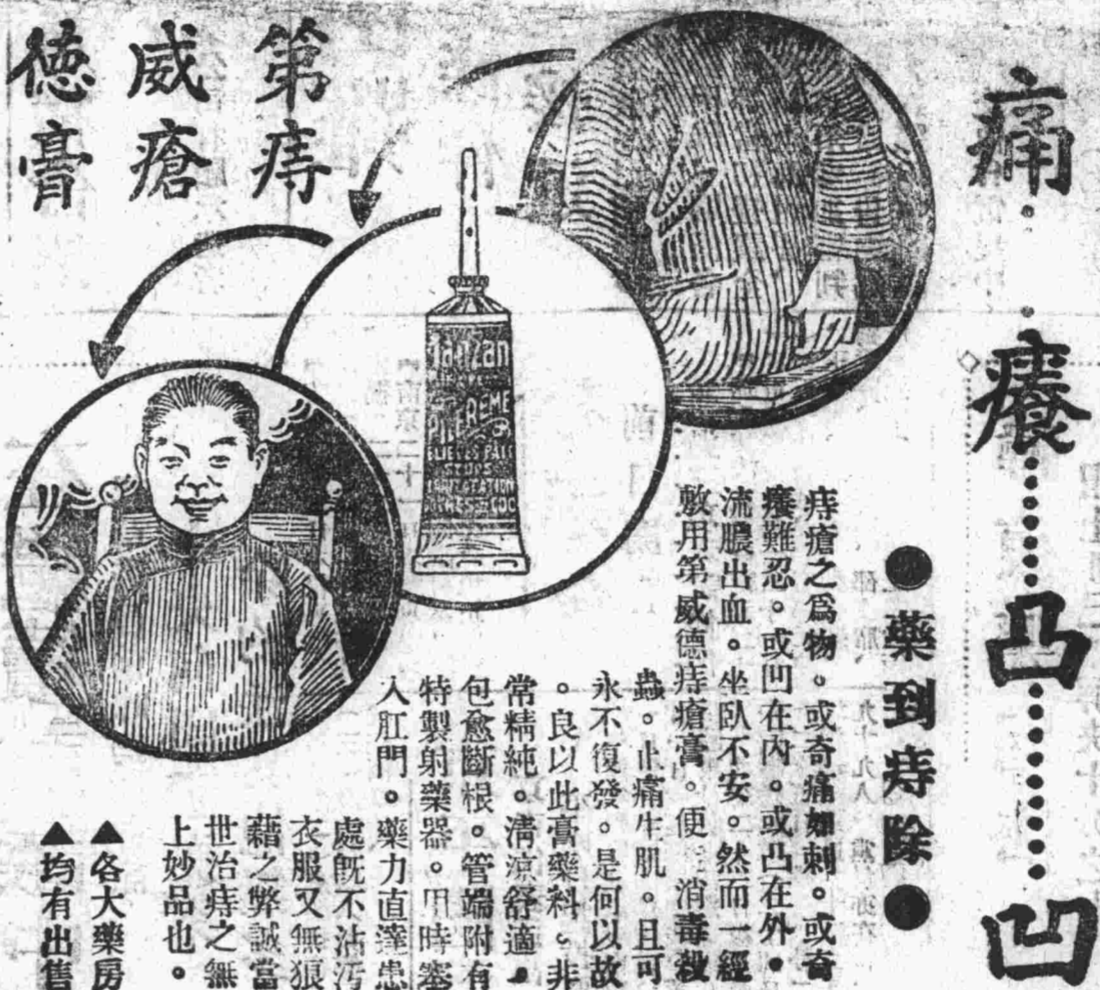 痛・・癢……凸……凹
●藥到痔除●
第威德
痔瘡膏
ManZan
REME
ELIEVES PAI
STOPS
痔瘡之爲物。或奇痛如刺。或奇
癢難忍。或凹在內。或凸在外。
流膿出血。坐臥不安。然而一經
敷用第威德痔瘡膏。便 消毒殺
蟲。止痛生肌。且可
永不復發。是何以故
。良以此膏藥料。非
常精純。淸涼舒適。
包愈斷根。管端附有
特製射藥器。用時塞
入肛門。藥力直達患
處旣不沾汚
衣服又無狼
藉之弊誠當
世治痔之無
上妙品也。
▲各大藥房
▲均有出售